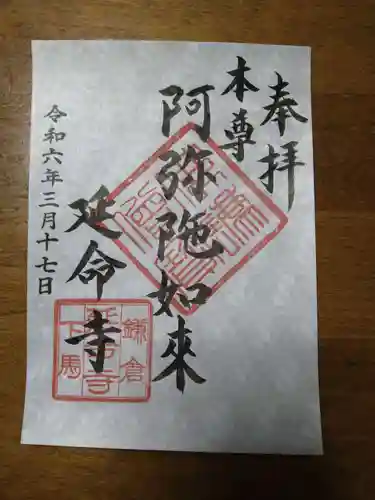 奉拝
本尊
阿弥陁如來
延命寺
令和六年三月十七日
鎌倉
延命寺
下馬